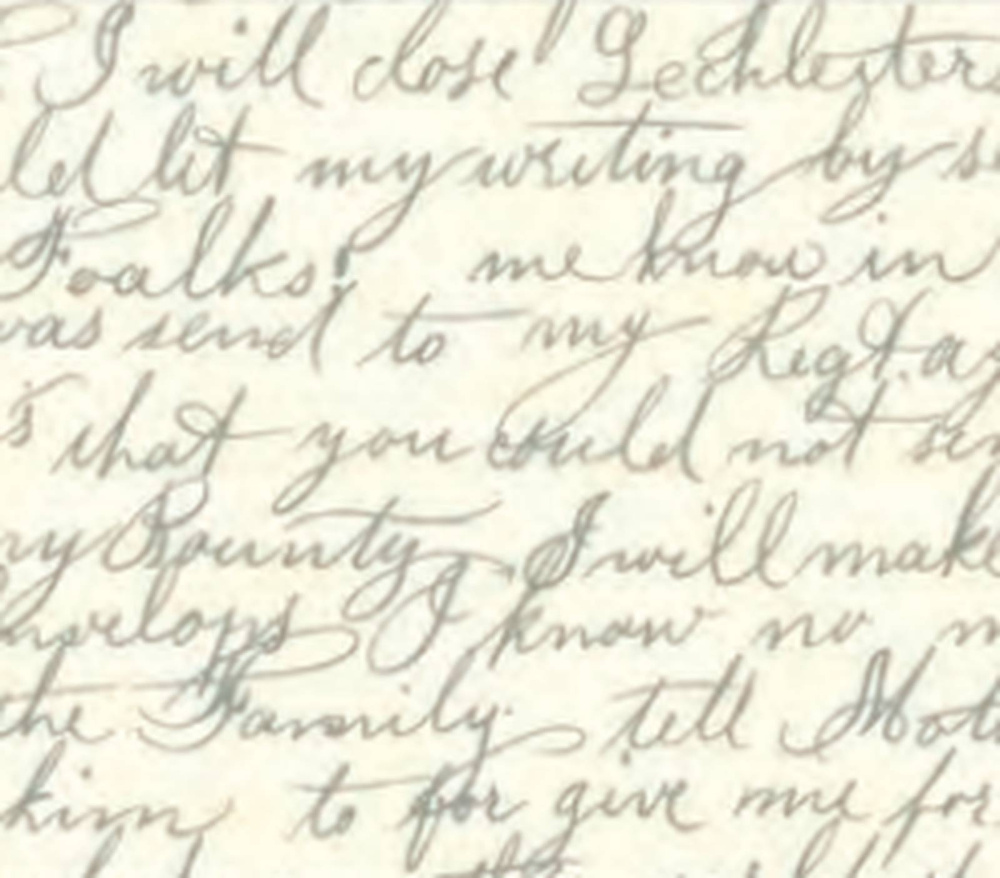 I will close Lechlesters
let my writing by
Foalks! me know in
was send to my Regt.
that you could not
Bounty, I will make
Envelops I know no
the Family. tell
him to for give me for